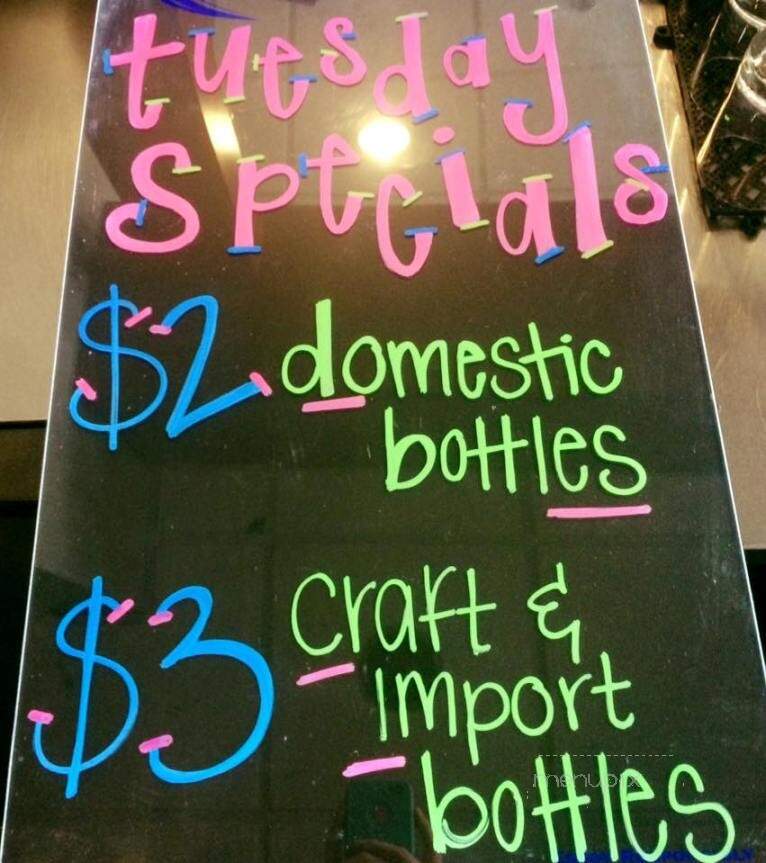 tuesday
specials
$2 domestic
bottles
$3 craft &
import
bottles
menupix